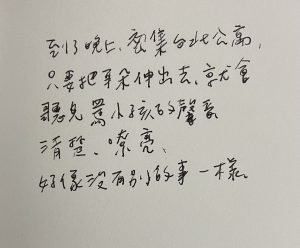 到了晚上，密集台北公寓，
只要把耳朵伸出去，就會
聽見罵小孩的聲音
清楚、嘹亮、
好像沒有別的事一樣。